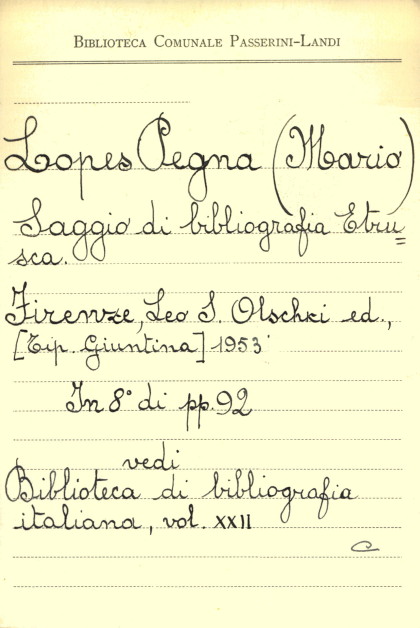 BIBLIOTECA COMUNALE PASSERINI-LANDI
Lopes Pegna (Mario)
Saggio di bibliografia Etru=
sca.
Firenze, Leo S. Olschki ed.,
[Tip. Giuntina] 1953
In 8° di pp. 92
vedi
Biblioteca di bibliografia
italiana, vol. XXII
C